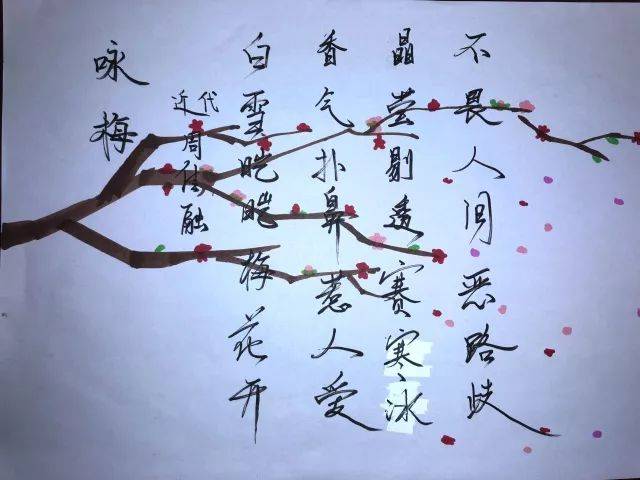 咏梅
近代
周融
白雪皑皑梅花开
香气扑鼻惹人爱
晶莹剔透赛寒冰
不畏人间恶路歧